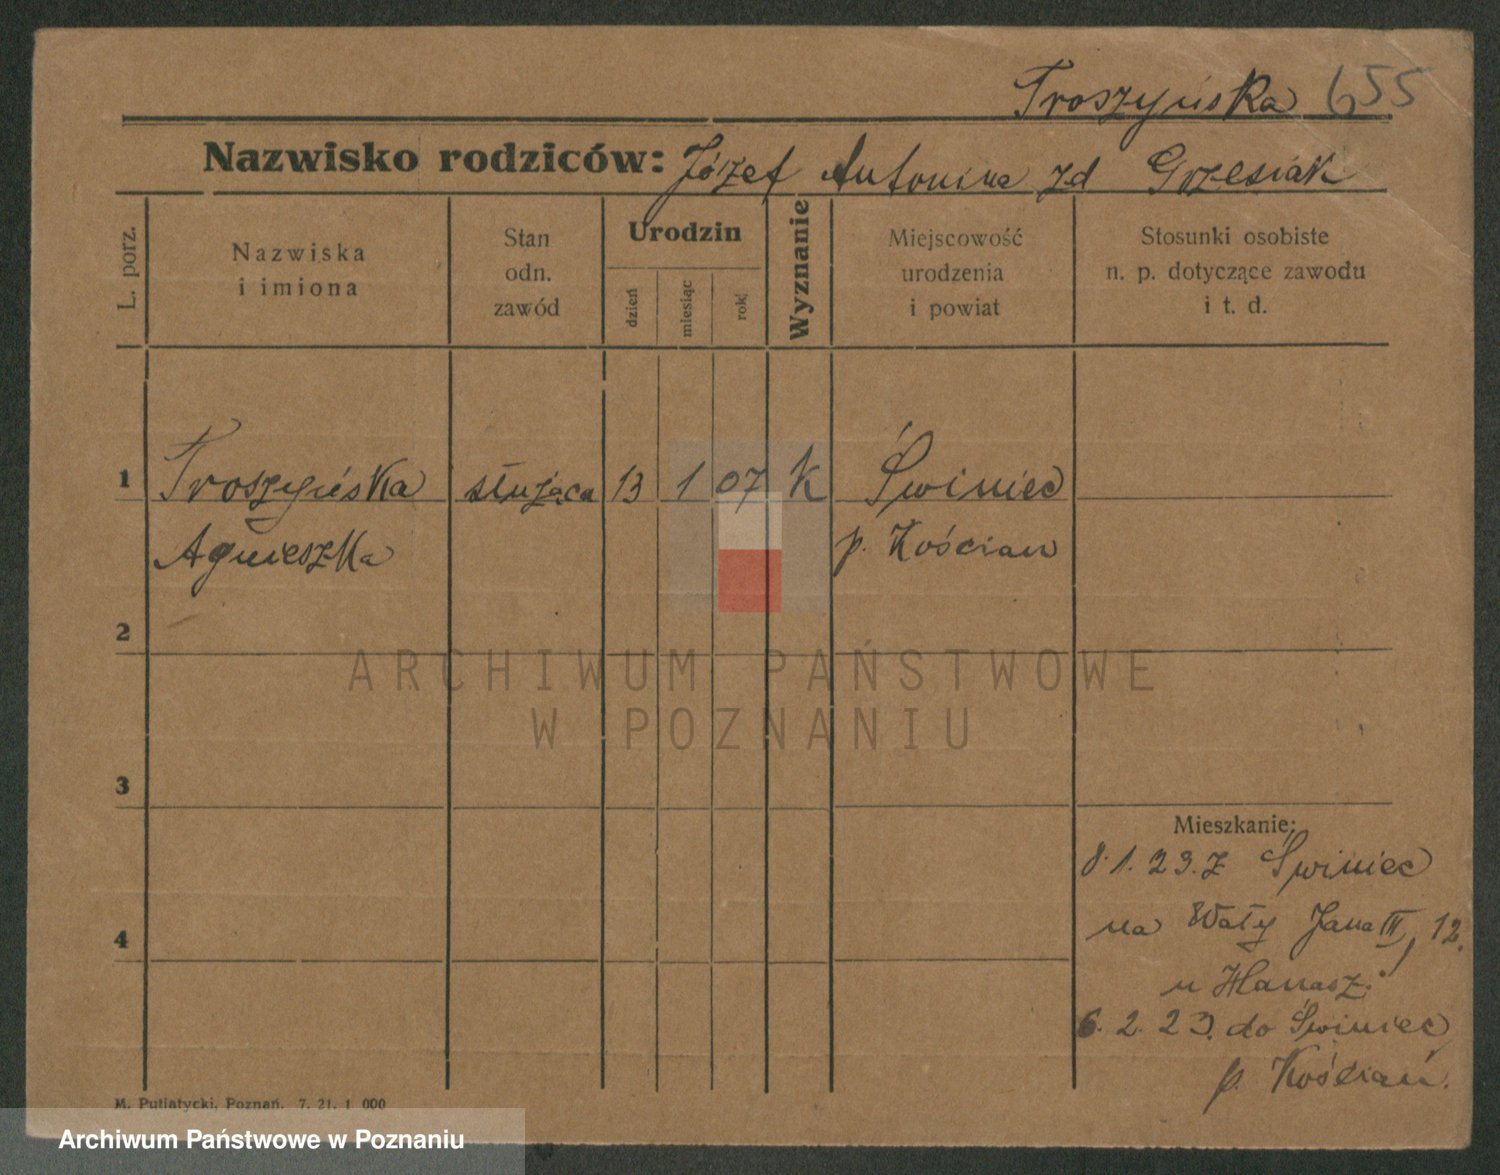 Troszyńska 655
Nazwisko rodziców: Józef Antonina zd Grzesiak
L. porz.
Nazwiska
i imiona
Stan
odn.
zawód
Urodzin
dzień
miesiąc
rok
Wyznanie
Miejscowość
urodzenia
i powiat
Stosunki osobiste
n. p. dotyczące zawodu
i t. d.
1 Troszyńska służąca 13 1 07 K Świniec
Agnieszka p. Kościan
2
ARCHIWUM PAŃSTWOWE
W POZNANIU
3
Mieszkanie:
8.1.23. z Świniec
na Wały Jana III, 12.
4
u Hanasz.
6.2.23. do Świniec
p. Kościan.
M. Putiatycki, Poznań. 7. 21. 1 000
Archiwum Państwowe w Poznaniu